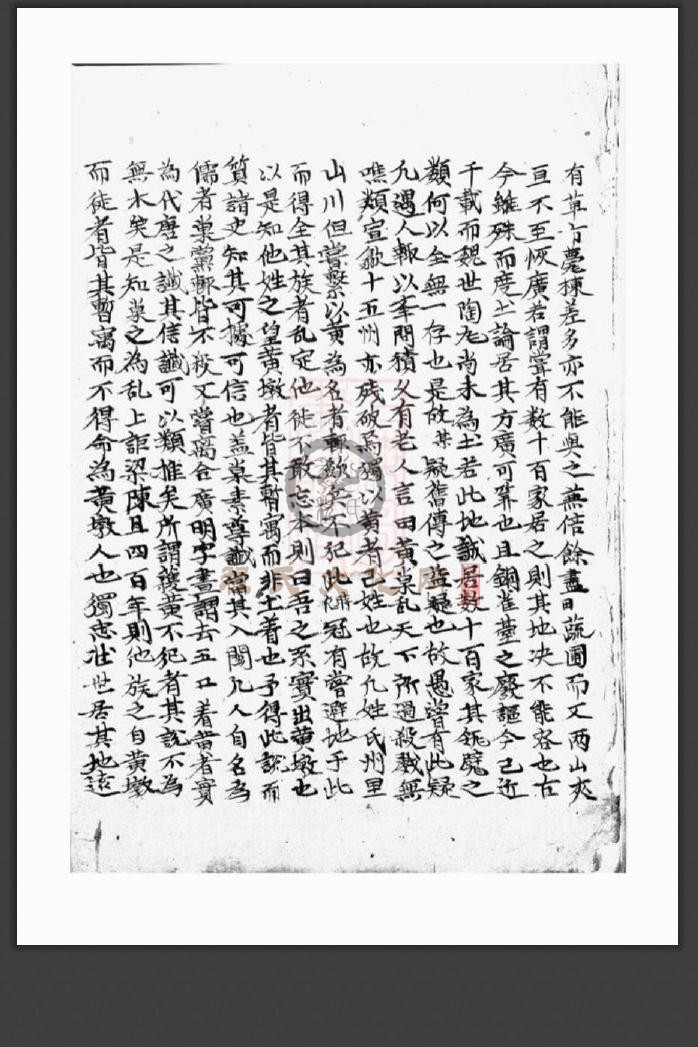 有草亭甍棟差多亦不能與之兼信餘盡日蔬圃而又两山夾
亘不至恢廣若謂甞有数十百家居之則其地决不能容也古
今雖殊而度土論居其方廣可筭也且銅雀臺之廢謳今已近
千載而魏世陶瓦尚未為土若此地誠居数十百家其瓴甓之
類何以全無一存也是故其疑舊傳之益疑也故愚甞有此疑
凡遇人輙以率問積久有老人言曰黄巢乱天下所過殺戮無
噍類宣歙十五州亦残破焉獨以黄者己姓也故凡姓氏州里
山川但甞繫以黄為名者輙歛兵不犯此衣冠有甞避地于此
而得全其族者乱定他徙不敢忘本則曰吾之系實出黄墩也
以是知他姓之望黄墩者皆其暫寓而非土着也予得此說而
質諸史知其可據可信也盖巢素尊讖當其入閩凡人自名為
儒者巢黨輙皆不殺又嘗离合廣明字畫謂去五口着黄者實
為代唐之讖其信讖可以類推矣所謂猿黄不犯者其説不為
無木矣是知巢之為乱上詎梁陳且四百年則他族之自黄墩
而徙者皆其暫寓而不得命為黄墩人也獨忠壯世居其地遠